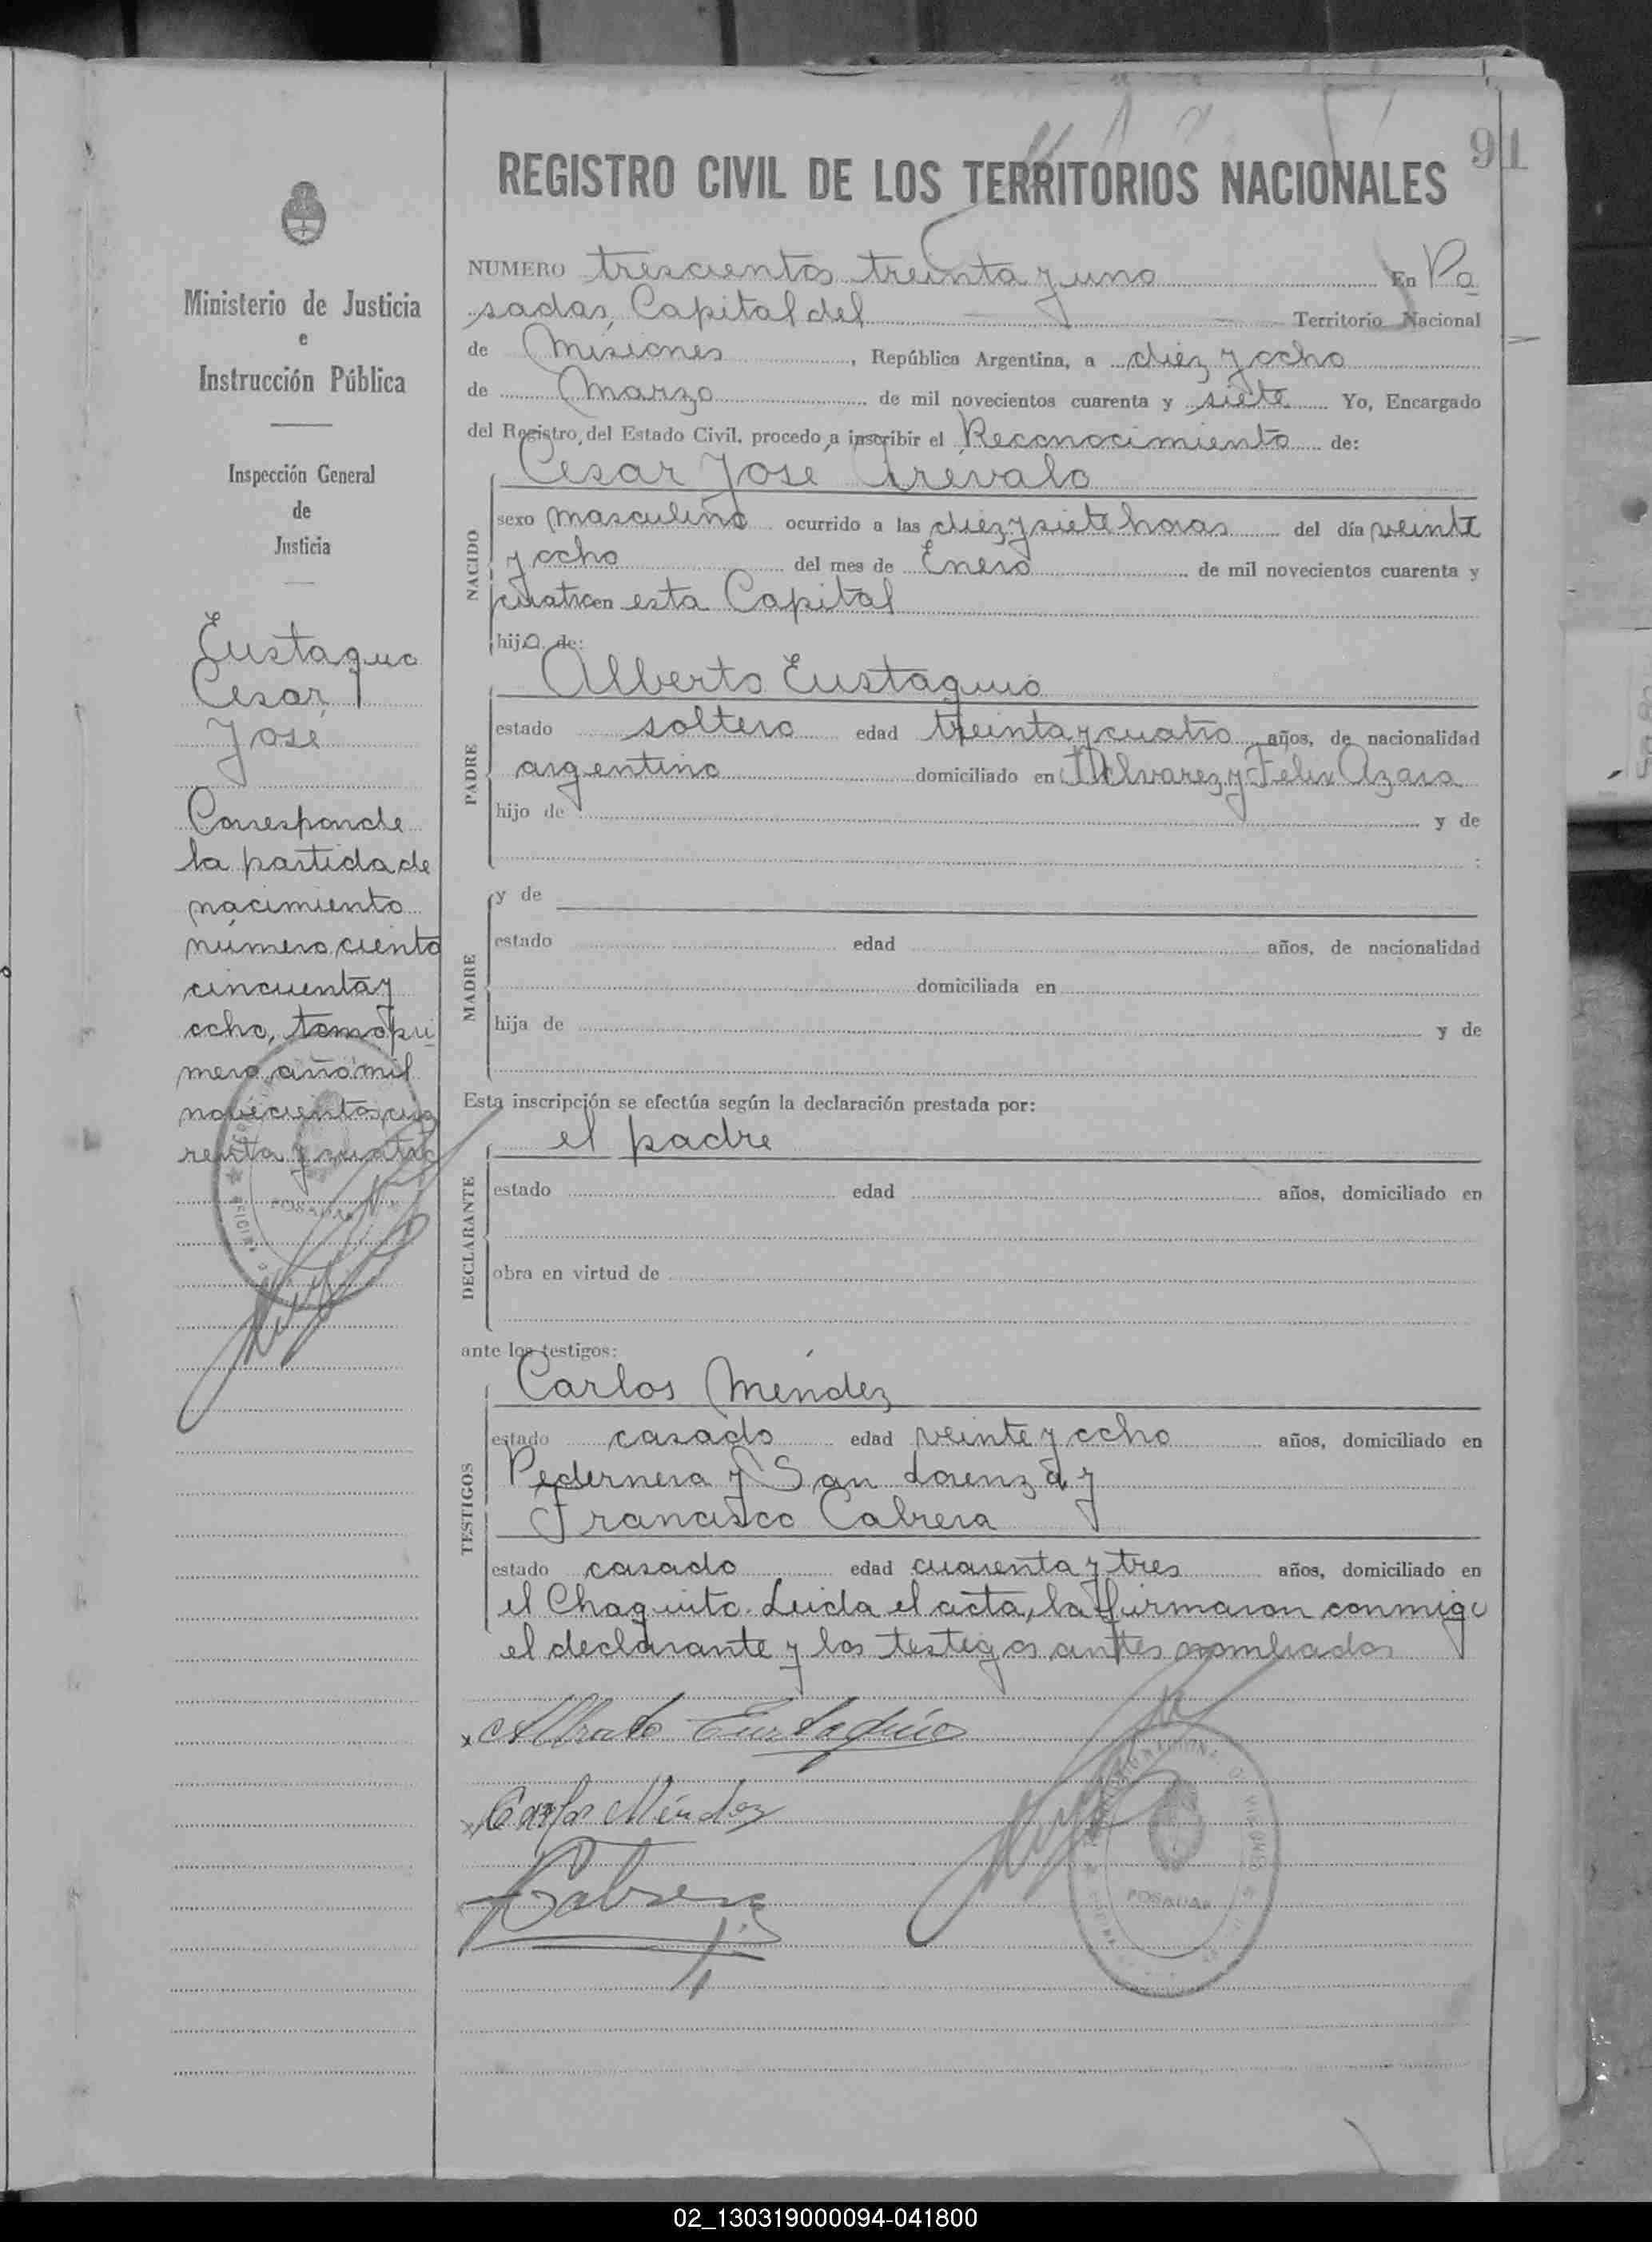 91
REGISTRO CIVIL DE LOS TERRITORIOS NACIONALES
Ministerio de Justicia
e
Instrucción Pública
Inspección General
de
Justicia
Eustaquio
Cesar
José
Corresponde
la partida de
nacimiento
número ciento
cincuenta y
ocho, tomo pri
mero año mil
novecientos cua
renta y cuatro
POSADAS
NUMERO trescientos treinta y uno En Po
sadas, Capital del Territorio Nacional
de Misiones, República Argentina, a diez y ocho
de Marzo de mil novecientos cuarenta y siete Yo, Encargado
del Registro del Estado Civil, procedo a inscribir el Reconocimiento de:
Cesar José Arevalo
NACIDO
sexo masculino ocurrido a las diez y siete horas del día veinte
y ocho del mes de Enero de mil novecientos cuarenta y
cuatro en esta Capital
hijo de:
Alberto Eustaquio
PADRE
estado soltero edad treinta y cuatro años, de nacionalidad
argentino domiciliado en Alvarez y Felix Azara
hijo de y de
:
MADRE
y de
estado edad años, de nacionalidad
domiciliada en
hija de y de
Esta inscripción se efectúa según la declaración prestada por:
el padre
DECLARANTE
estado edad años, domiciliado en
obra en virtud de
ante los testigos:
Carlos Méndez
TESTIGOS
estado casado edad veinte y ocho años, domiciliado en
Pedernera y San Lorenzo y
Francisco Cabrera
estado casado edad cuarenta y tres años, domiciliado en
el Chaquito. Leida el acta, la firmaron conmigo
el declarante y los testigos antes nombrados
Alberto Eustaquio
Carlos Méndez
Cabrera
POSADAS
02_130319000094-041800